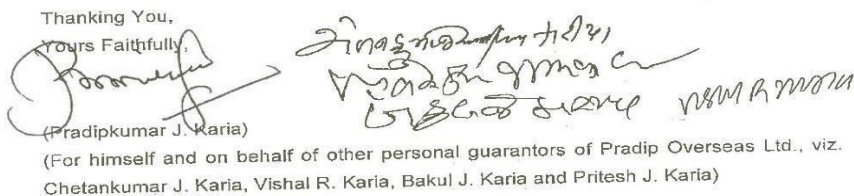 Thanking You,
Yours Faithfully,
(Pradipkumar J. Karia)
(For himself and on behalf of other personal guarantors of Pradip Overseas Ltd., viz.
Chetankumar J. Karia, Vishal R. Karia, Bakul J. Karia and Pritesh J. Karia)